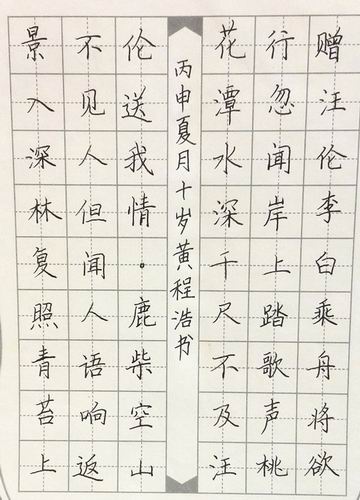 赠汪伦李白乘舟将欲
行忽闻岸上踏歌声桃
花潭水深千尺不及汪
伦送我情。鹿柴空山
不见人但闻人语响返
景入深林复照青苔上
丙申夏月十岁黄程浩书